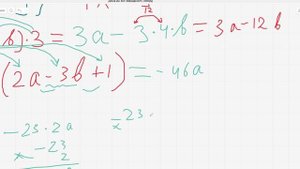 12
b) · 3 = 3a - 3 · 4 · b = 3a - 12b
(2a - 3b + 1) = - 46a
- 23 · 2a
× - 23 ·
× - 23
2